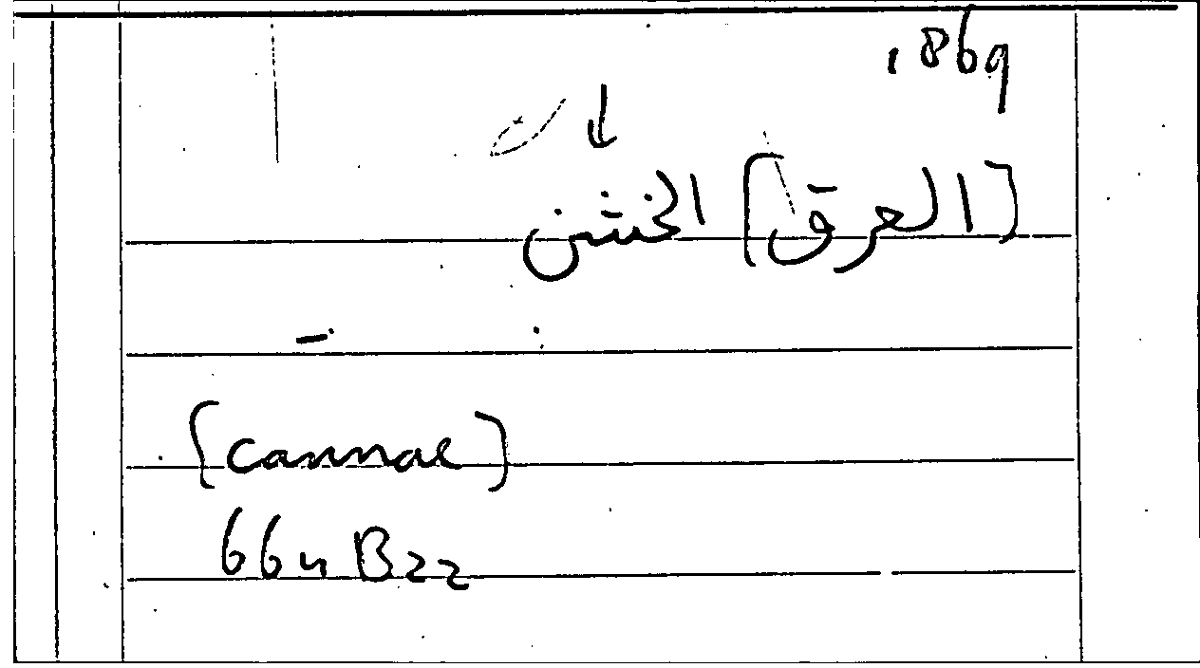 .869
[العرق] الخشن
[cannae]
66u B22